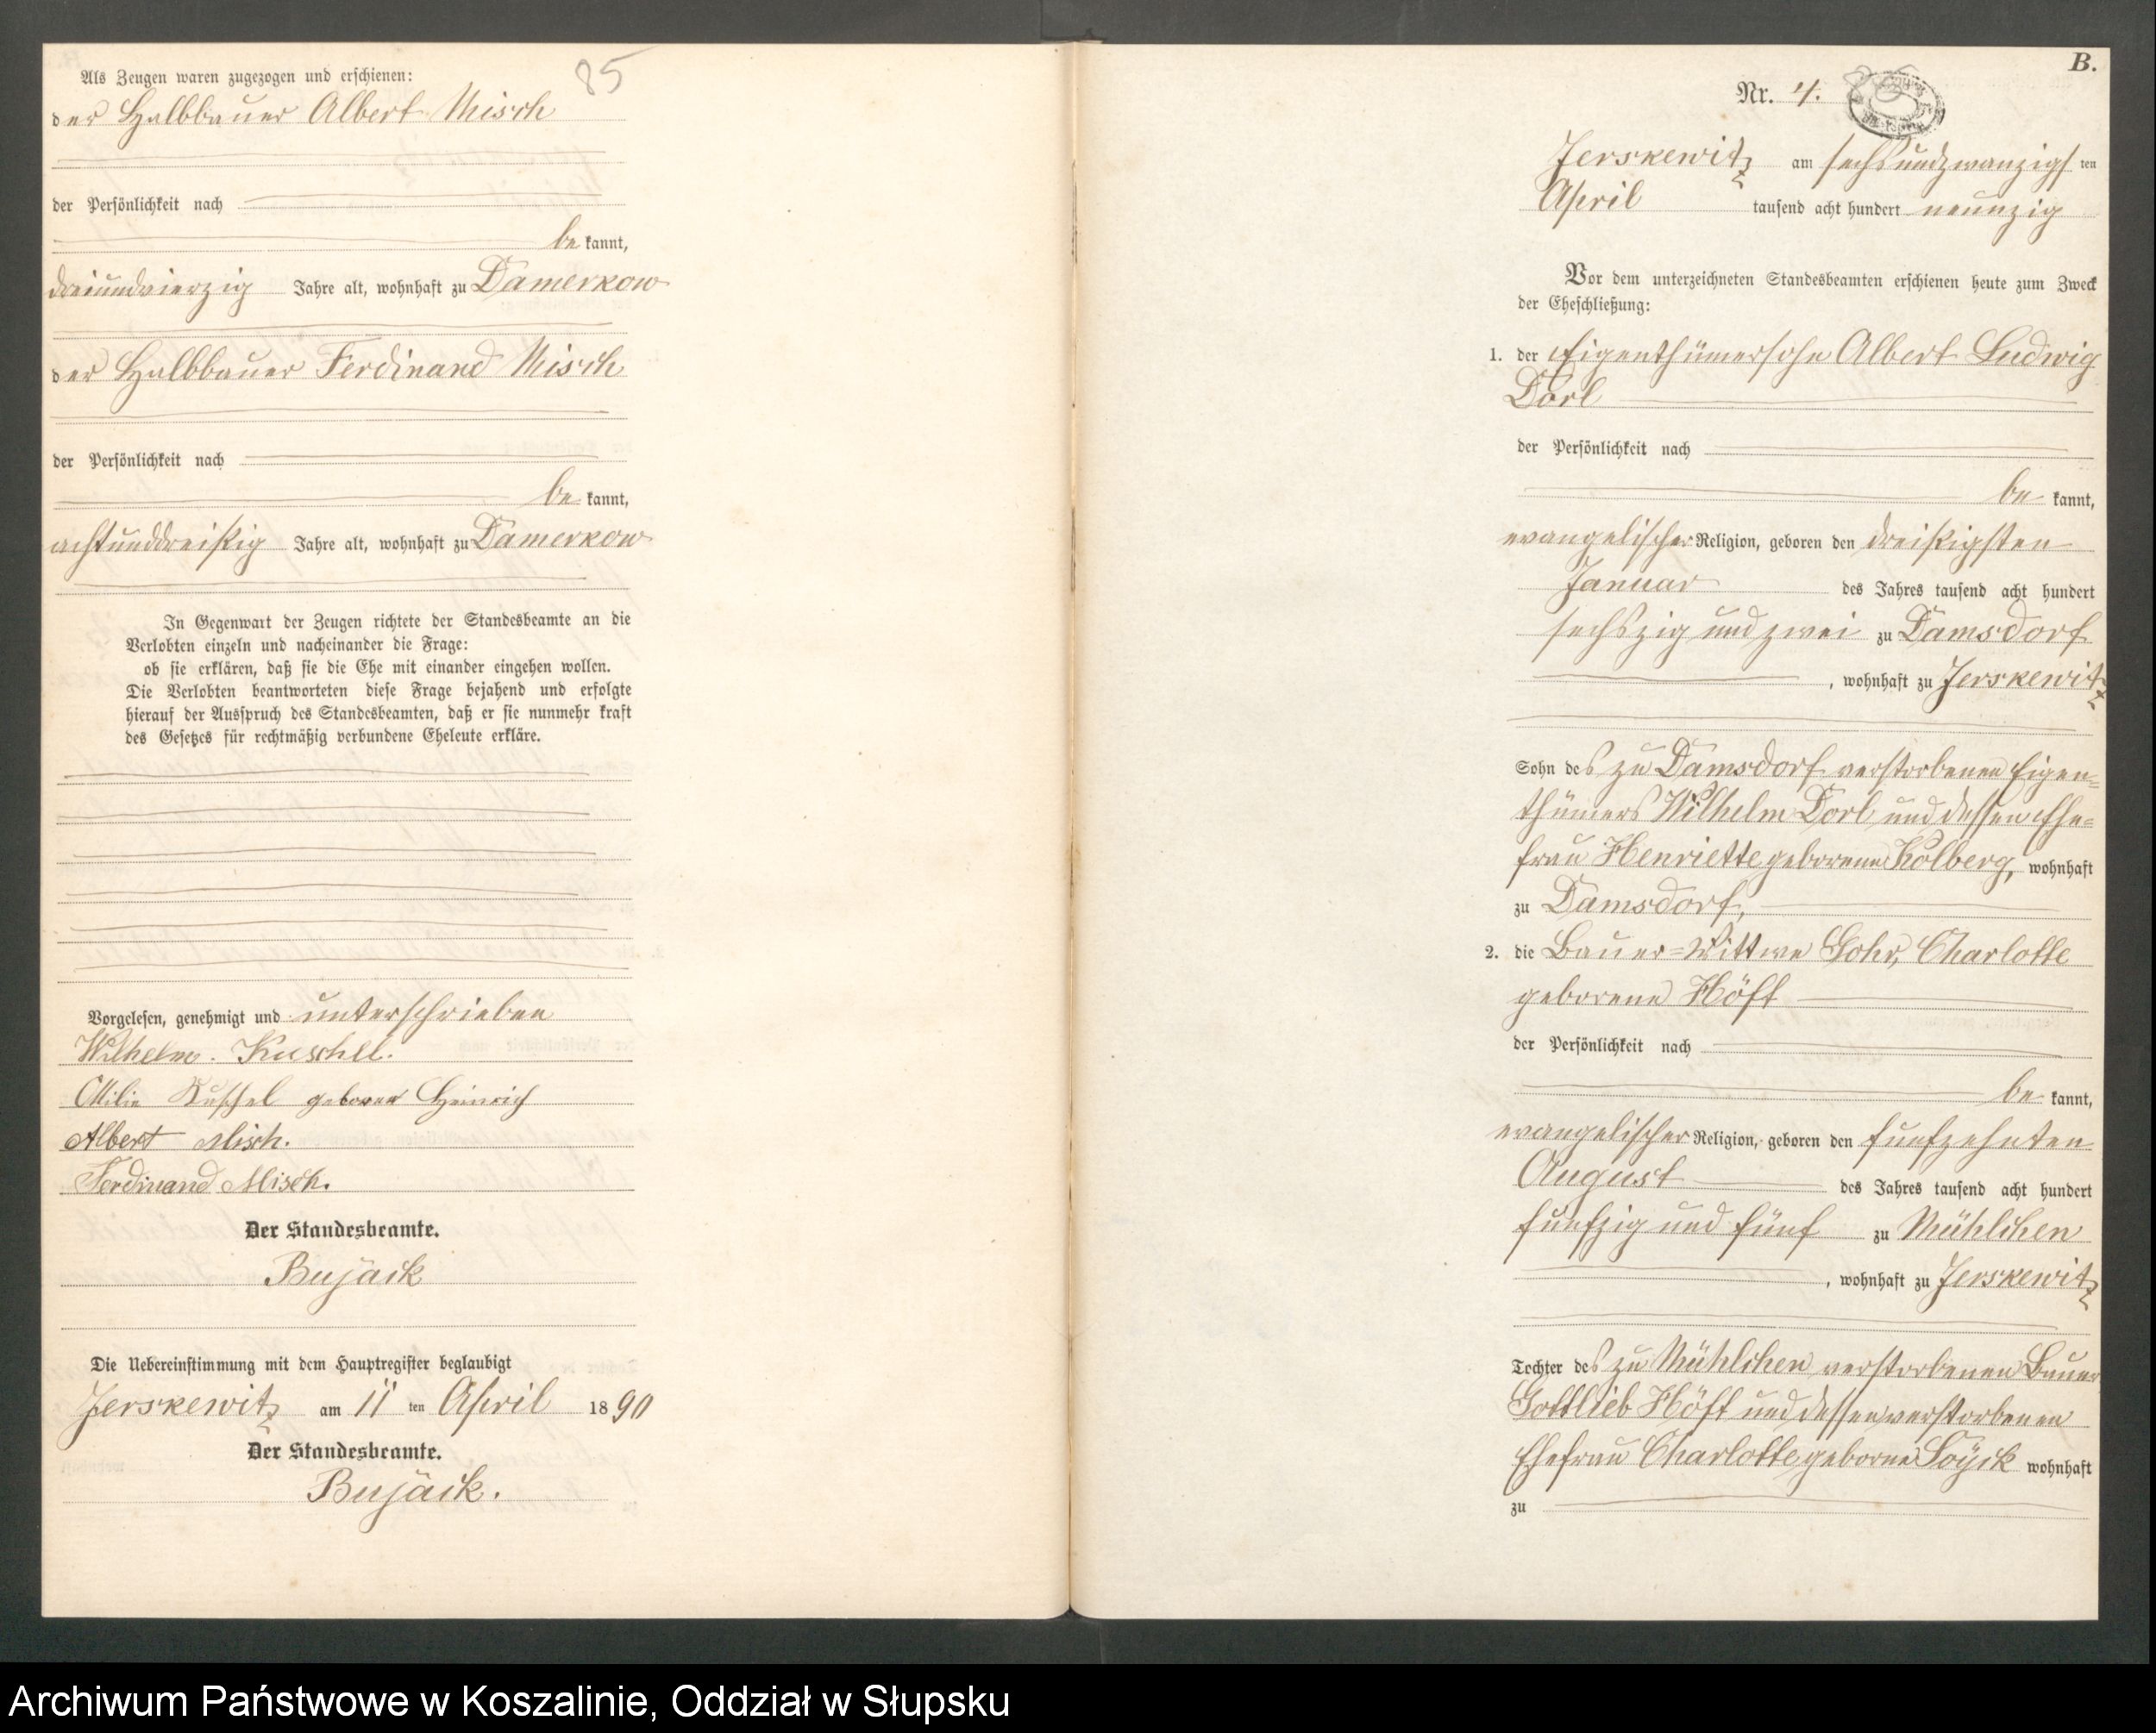 85
Als Zeugen waren zugezogen und erschienen:
der Halbbauer Albert Misch
der Persönlichkeit nach
be kannt,
dreiundvierzig Jahre alt, wohnhaft zu Damerkow
der Halbbauer Ferdinand Misch
der Persönlichkeit nach
be kannt,
achtunddreißig Jahre alt, wohnhaft zu Damerkow
In Gegenwart der Zeugen richtete der Standesbeamte an die
Verlobten einzeln und nacheinander die Frage:
ob sie erklären, daß sie die Ehe mit einander eingehen wollen.
Die Verlobten beantworteten diese Frage bejahend und erfolgte
hierauf der Ausspruch des Standesbeamten, daß er sie nunmehr kraft
des Gesetzes für rechtmäßig verbundene Eheleute erkläre.
Vorgelesen, genehmigt und unterschrieben
Wilhelm. Kuschel.
Kuschel geboren Heinrich
Albert Misch.
Ferdinand Misch.
Der Standesbeamte.
Bujack
Die Uebereinstimmung mit dem Hauptregister beglaubigt
Jerskewitz am 11 ten April 1890
Der Standesbeamte.
Bujack.
B.
Nr. 4.
Jerskewitz am sechsundzwanzigsten
April tausend acht hundert neunzig
Vor dem unterzeichneten Standesbeamten erschienen heute zum Zweck
der Eheschließung:
1. der Eigenthümersohn Albert Ludwig
Dorl
der Persönlichkeit nach
be kannt,
evangelischer Religion, geboren den dreißigsten
Januar des Jahres tausend acht hundert
sechszig und zwei zu Damsdorf
, wohnhaft zu Jerskewitz
Sohn des zu Damsdorf verstorbenen Eigen=
thümers Wilhelm Dorl und dessen Ehe=
frau Henriette geborene Kolberg, wohnhaft
zu Damsdorf,
2. die Bauer=Wittwe Gohr, Charlotte
geborene Höft
der Persönlichkeit nach
be kannt,
evangelischer Religion, geboren den funfzehnten
August des Jahres tausend acht hundert
funfzig und fünf zu Mühlchen
, wohnhaft zu Jerskewitz
Tochter des zu Mühlchen verstorbenen Bauer
Gottlieb Höft und dessen verstorbenen
Ehefrau Charlotte geborne wohnhaft
zu
Archiwum Państwowe w Koszalinie, Oddział w Słupsku